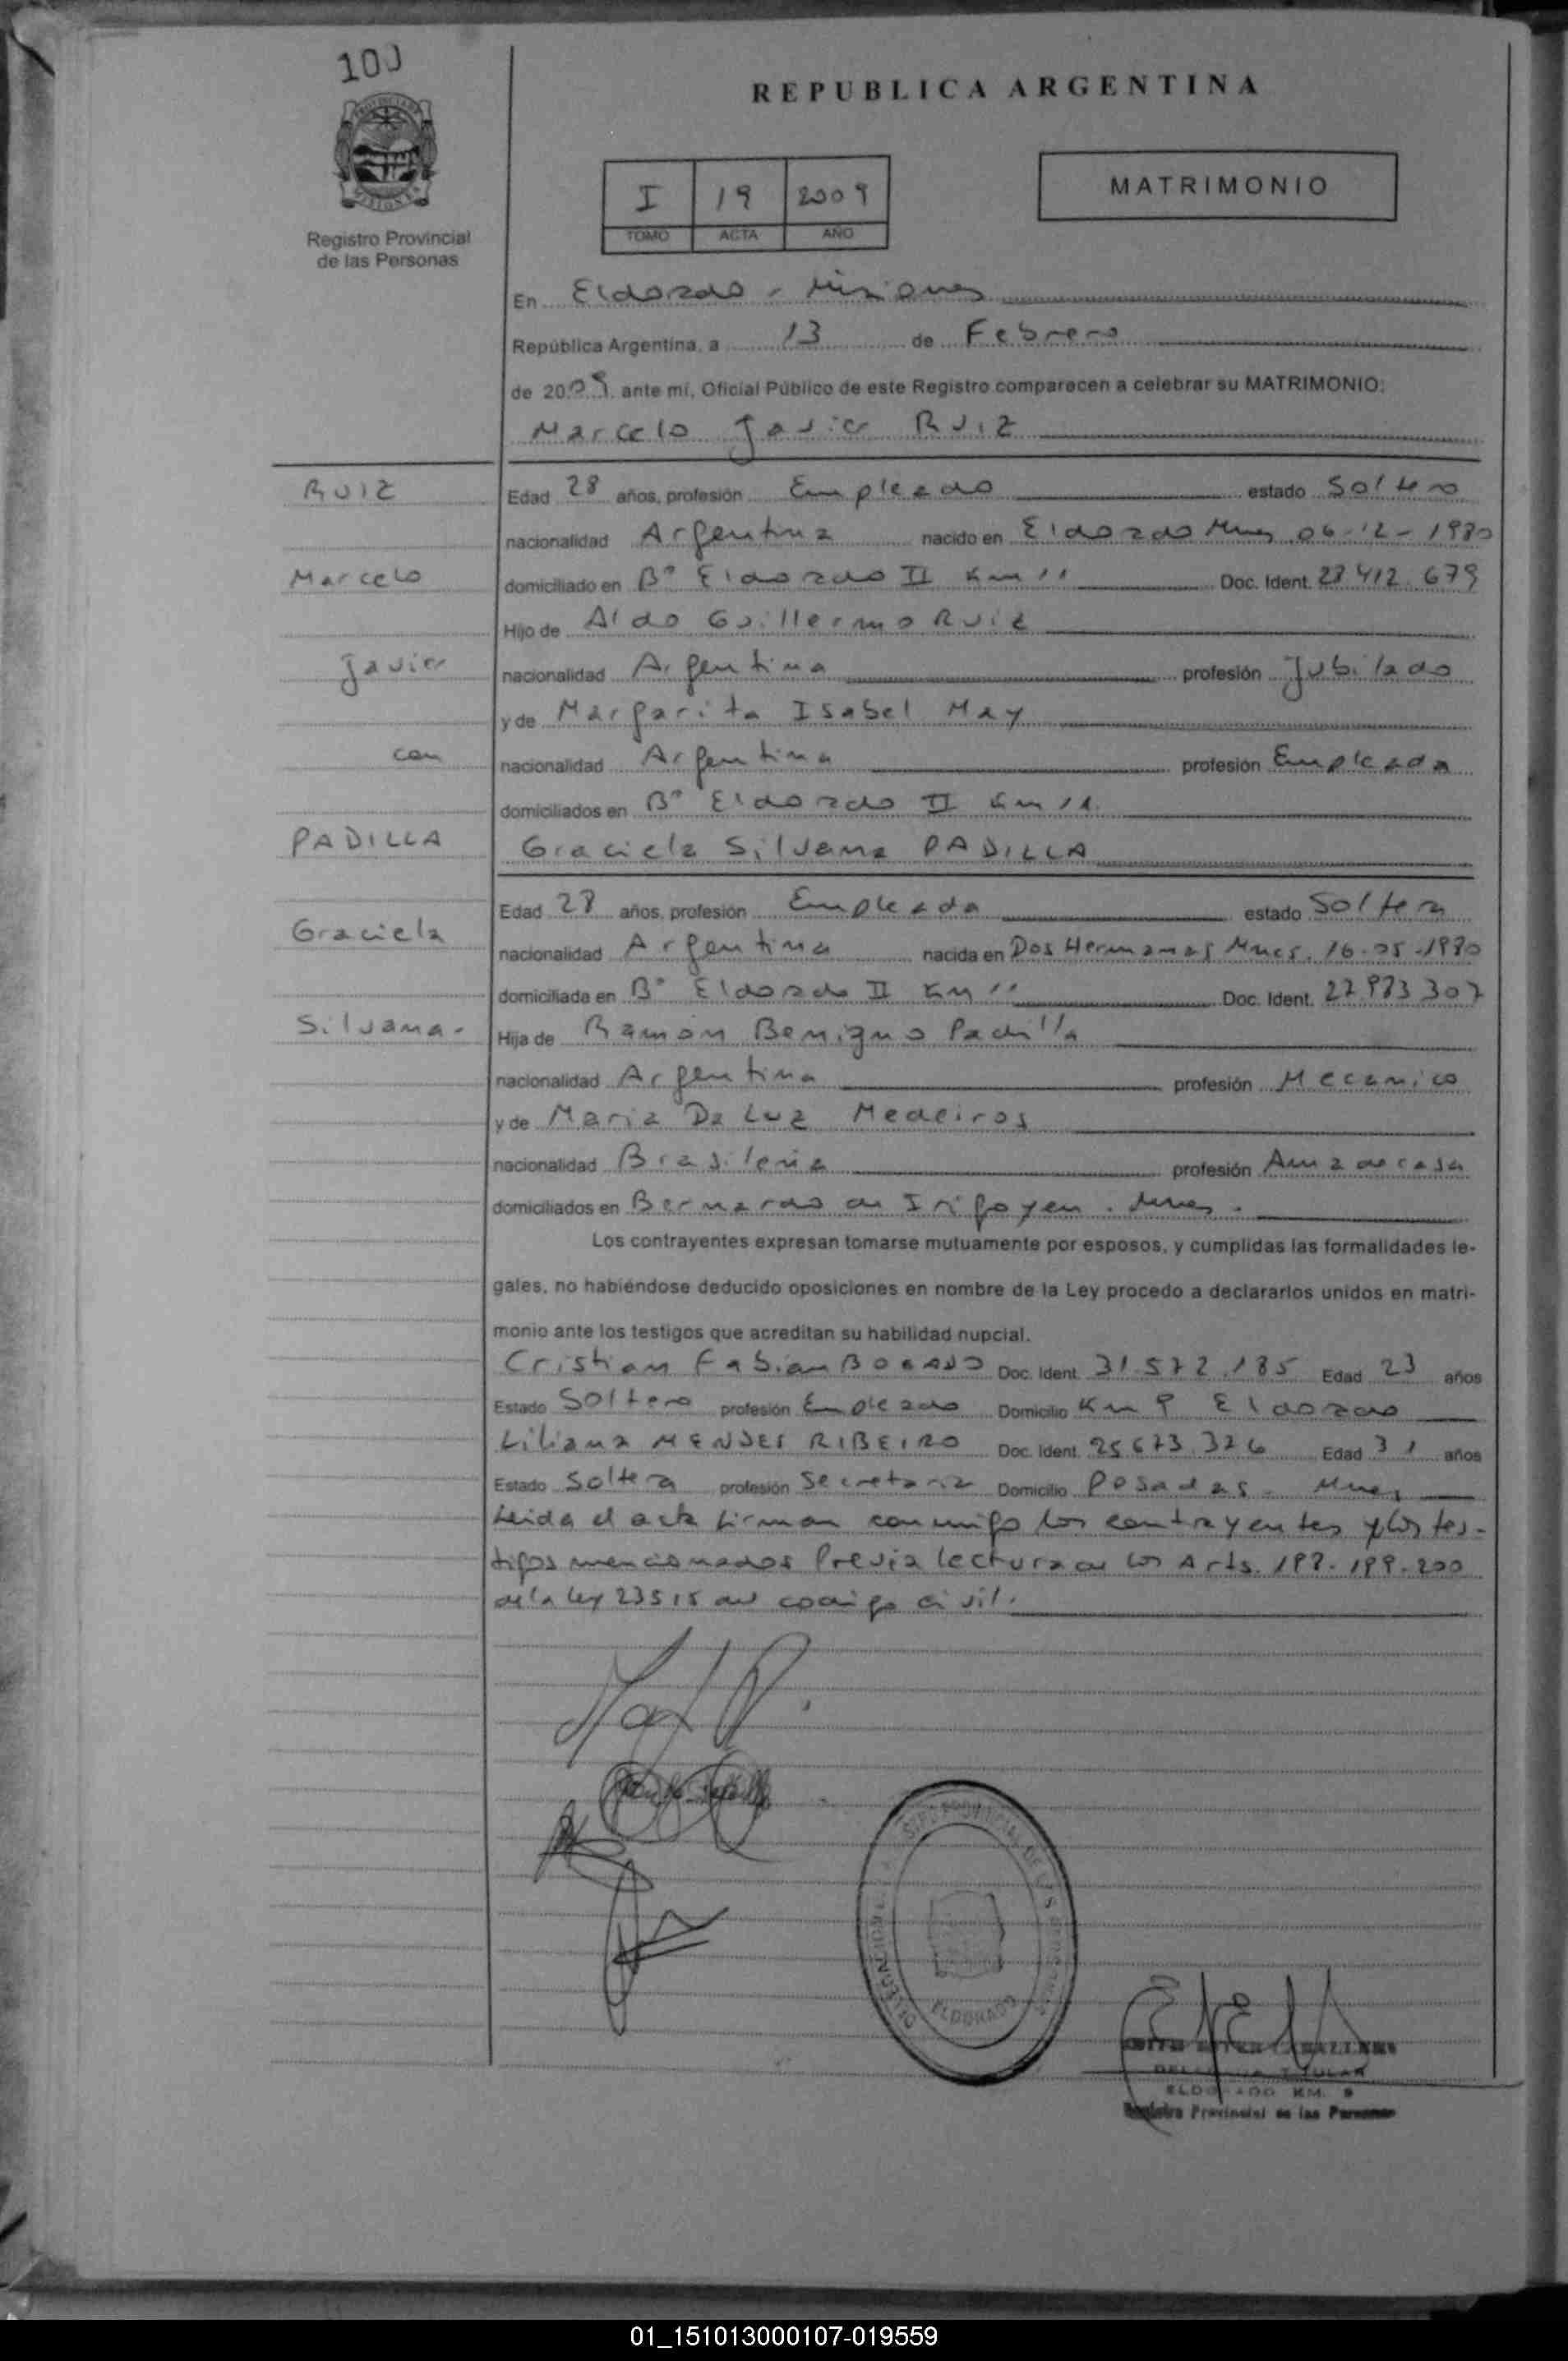 100
REPUBLICA ARGENTINA
I 19 2009
TOMO ACTA AÑO
MATRIMONIO
Registro Provincial
de las Personas
En Eldorado - Misiones
República Argentina, a 13 de Febrero
de 2009 ante mí, Oficial Público de este Registro comparecen a celebrar su MATRIMONIO:
Marcelo Javier RUIZ
RUIZ
Edad 28 años, profesión Empleado estado Soltero
nacionalidad Argentina nacido en Eldorado Mnes 06-12-1980
Marcelo
domiciliado en B° Eldorado II Km 11 Doc. Ident. 28.412.679
Hijo de Aldo Guillermo Ruiz
Javier
nacionalidad Argentina profesión Jubilado
y de Margarita Isabel May
con
nacionalidad Argentina profesión Empleada
domiciliados en B° Eldorado II Km 11.
PADILLA
Graciela Silvana PADILLA
Edad 28 años, profesión Empleada estado Soltera
Graciela
nacionalidad Argentina nacida en Dos Hermanas Mnes. 16-05-1980
domiciliada en B° Eldorado II Km 11 Doc. Ident. 27.983.307
Silvana.
Hija de Ramón Benigno Padilla
nacionalidad Argentina profesión Mecanico
y de Maria Da Luz Medeiros
nacionalidad Brasileña profesión Ama de casa
domiciliados en Bernardo de Irigoyen. Mnes.
Los contrayentes expresan tomarse mutuamente por esposos, y cumplidas las formalidades le-
gales, no habiéndose deducido oposiciones en nombre de la Ley procedo a declararlos unidos en matri-
monio ante los testigos que acreditan su habilidad nupcial.
Cristian Fabian BOGADO Doc. Ident. 31.572.185 Edad 23 años
Estado Soltero profesión Empleado Domicilio Km 9 Eldorado
Liliana MENDES RIBEIRO Doc. Ident. 25.673.326 Edad 31 años
Estado Soltera profesión Secretaria Domicilio Posadas - Mnes
Leida el acta firman conmigo los contrayentes y los tes-
tigos mencionados Previa lectura de los Arts. 198-199-200
de la ley 23515 del codigo civil.
ELDORADO
ELDORADO KM. 9
Registro Provincial de las Personas
01_151013000107-019559